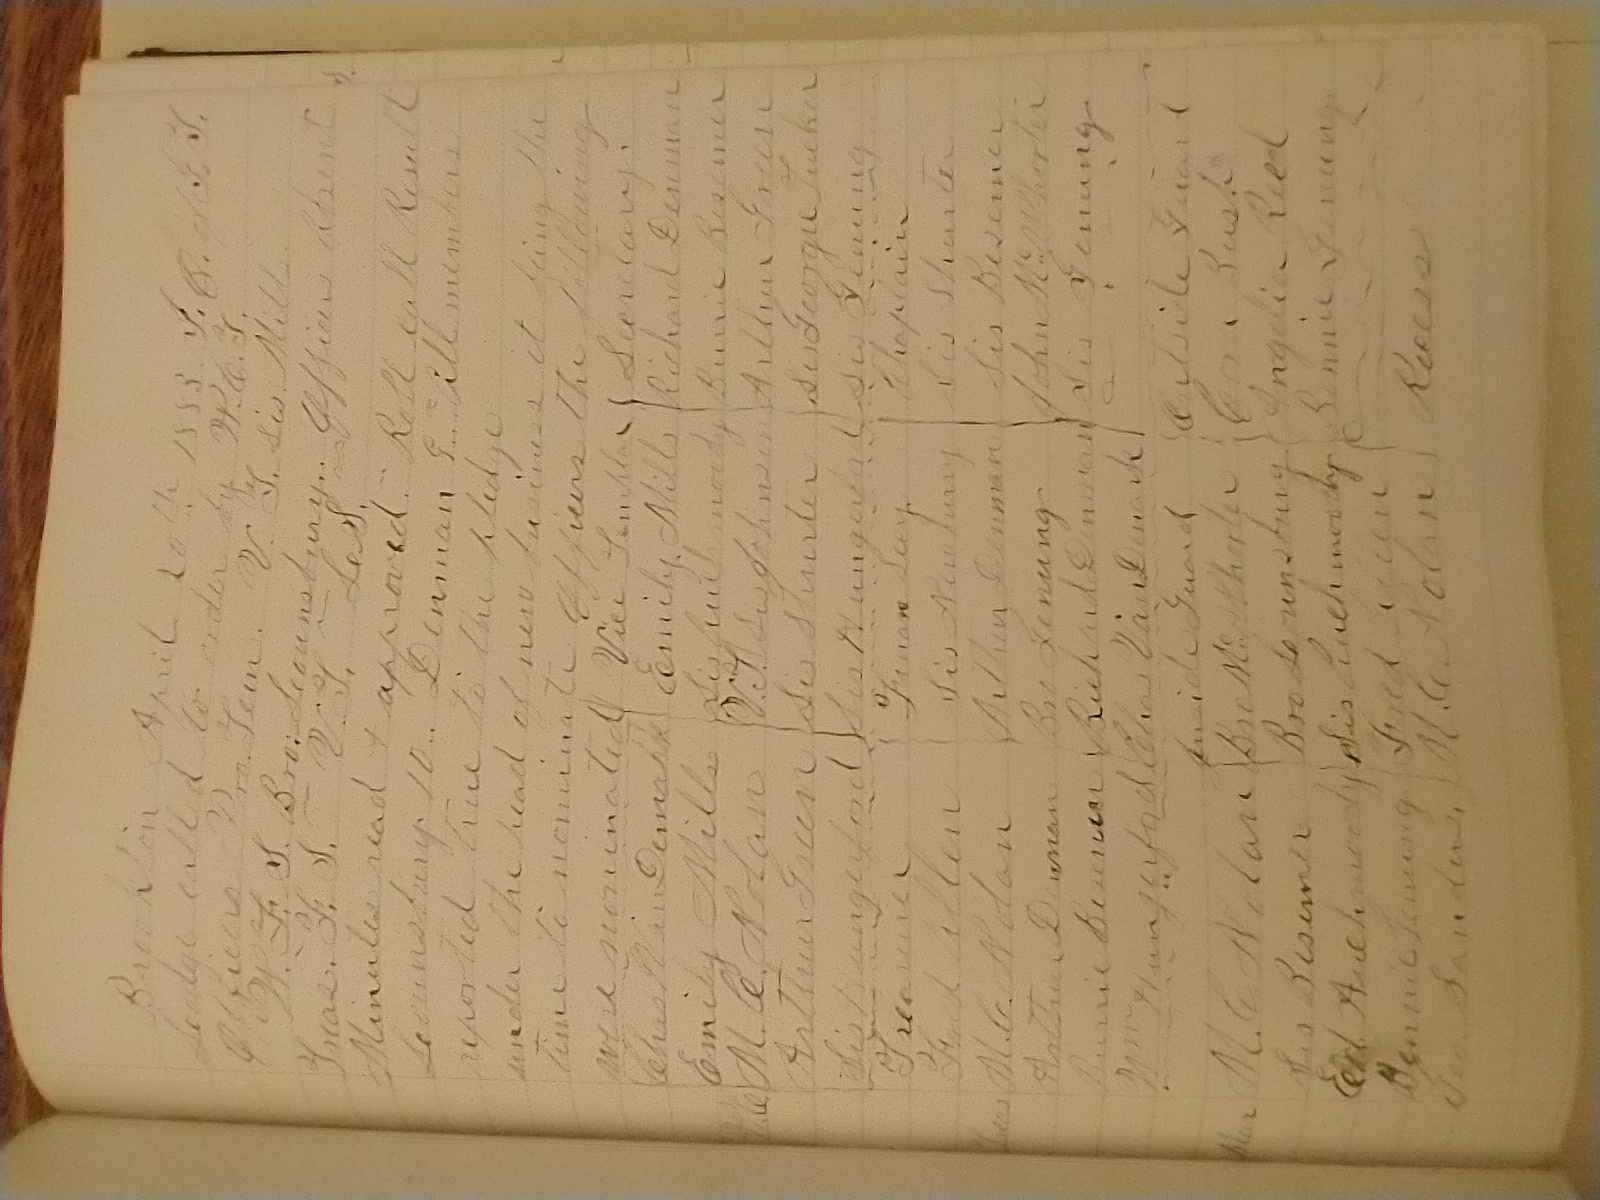 Brookton April 20th 1883 I. O. of G. T.
Lodge called to order by W.C.T.
Officers Pro. Tem. V. T. Sis. Mills
W. F. S. Bro: Lounsbury.. Officers Absent
Treas. F. S. V.T. L.S.
Minutes read + approved. Roll call Result
Lounsbury 10.. Denman 9... All members
reported true to the pledge
under the head of new business it being the
time to nominate Officers the following
were nominated Vice Templar Secretary.
Chas VanDemark Emily Mills Richard Denman
Emily Mills Sis Auchmoody Burrie Besemer
W.C. M. C. Nolan V.T. Sis Johnson Arthur Green
Arthur Green Sis Shurter Sis Georgie Tucker
Sis Hungerford Sis Hungerford Sis Genung
Treasurer Finan Secy. Chaplain
Fred Allen Sis Newburry Sis Shurter
Treas M. C. Nolan Arthur Denman Sis Besemer
Arthur Denman Bro Genung John McWhorter
Burrie Besemer Richard Denman Sis Genung
Wm Hungerford Chas VanDemark
Inside Guard Outside Guard
Mar M. C. Nolan Bro McWhorter Cora Rush
Sis Besemer Bro Lounsbury Angelia Reed
Ed Auchmoody Sis Auchmoody Bennie Genung
Bennie Genung Fred Allen
Geo. Sanders. M. C. Nolan Recess